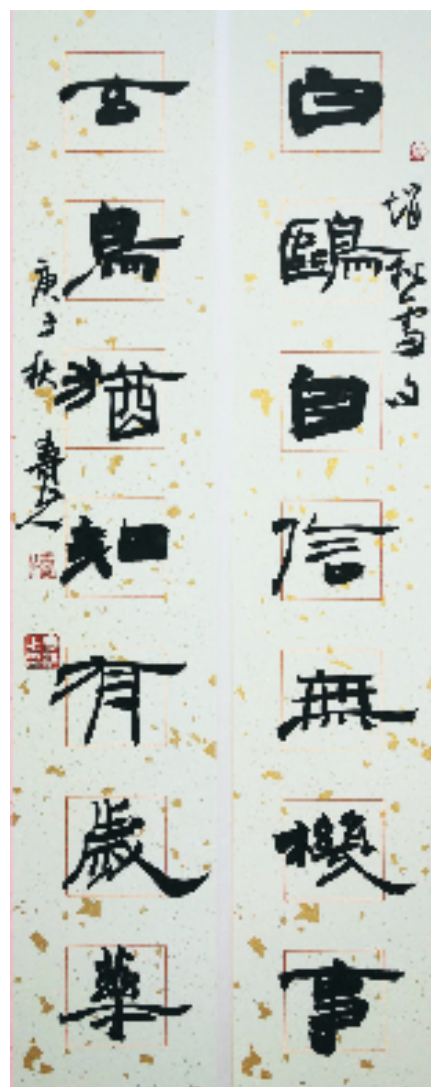 白鷗自信無機事
秋雪句
玄鳥猶知有歲華
庚子秋 壽